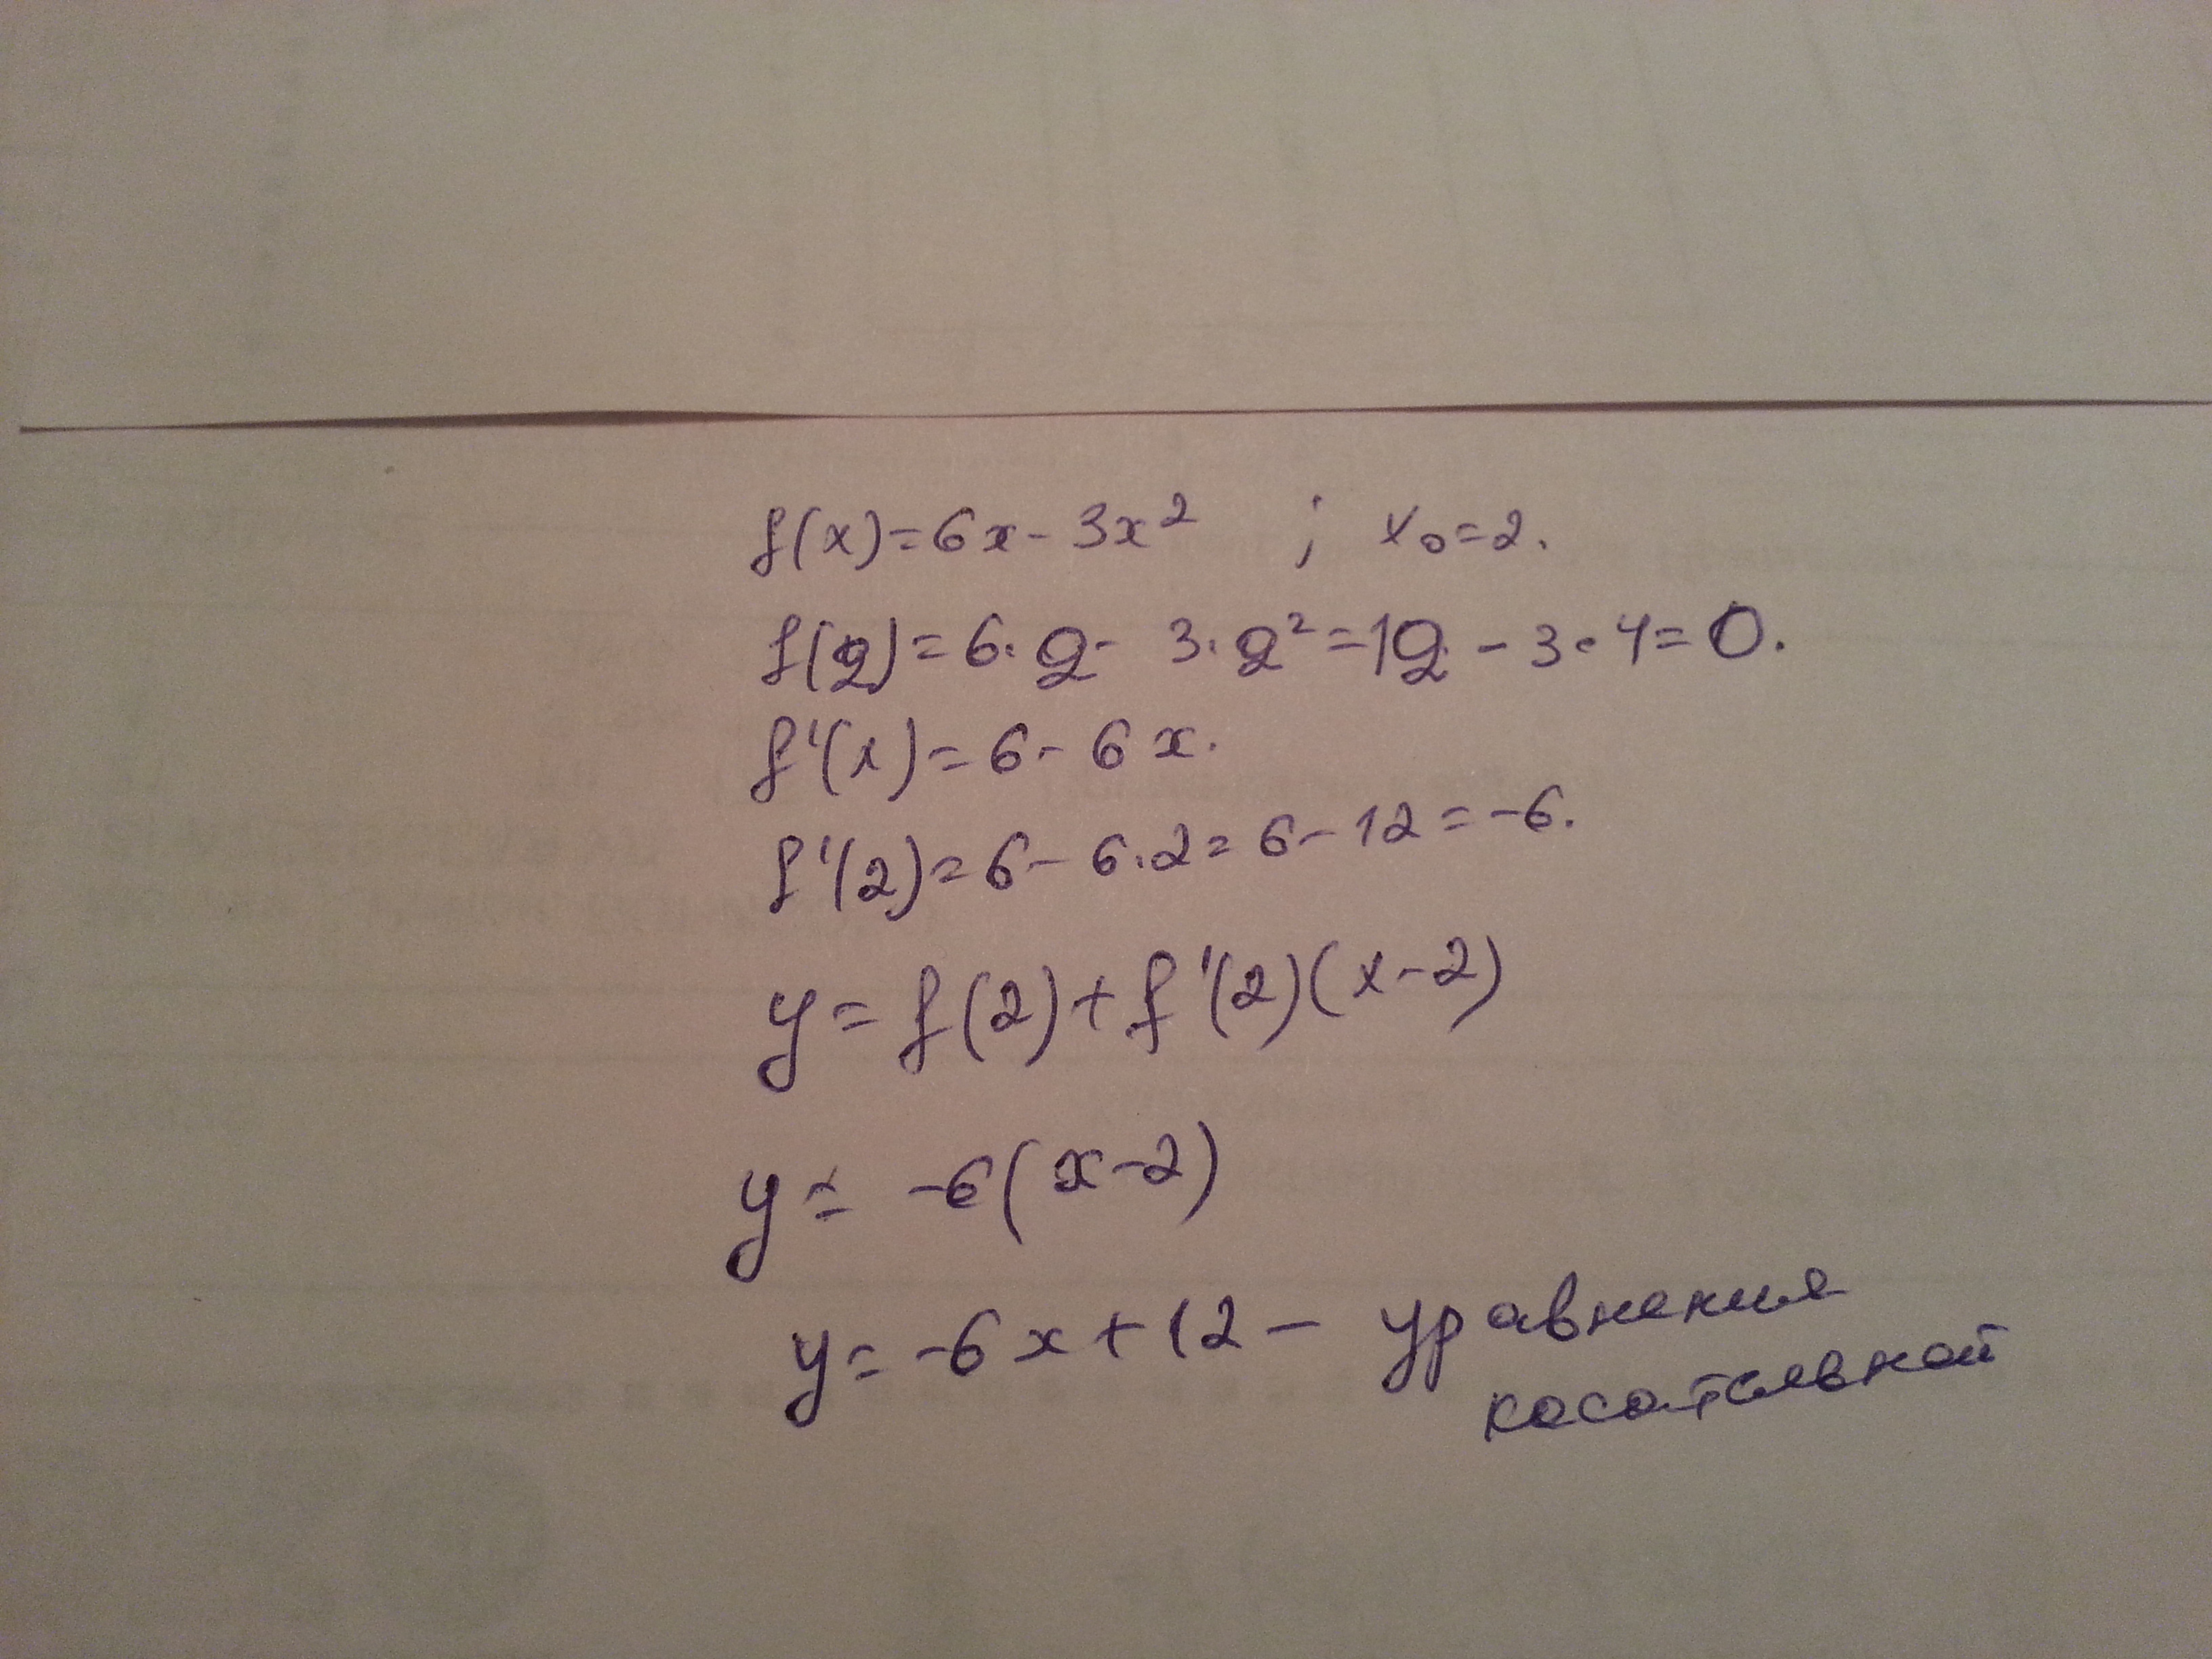 f(x)=6x-3x² ; x₀=2.
f(2)=6·2-3·2²=12-3·4=0.
f'(x)=6-6x.
f'(2)=6-6·2=6-12=-6.
y=f(2)+f'(2)(x-2)
y=-6(x-2)
y=-6x+12- уравнение
касательной